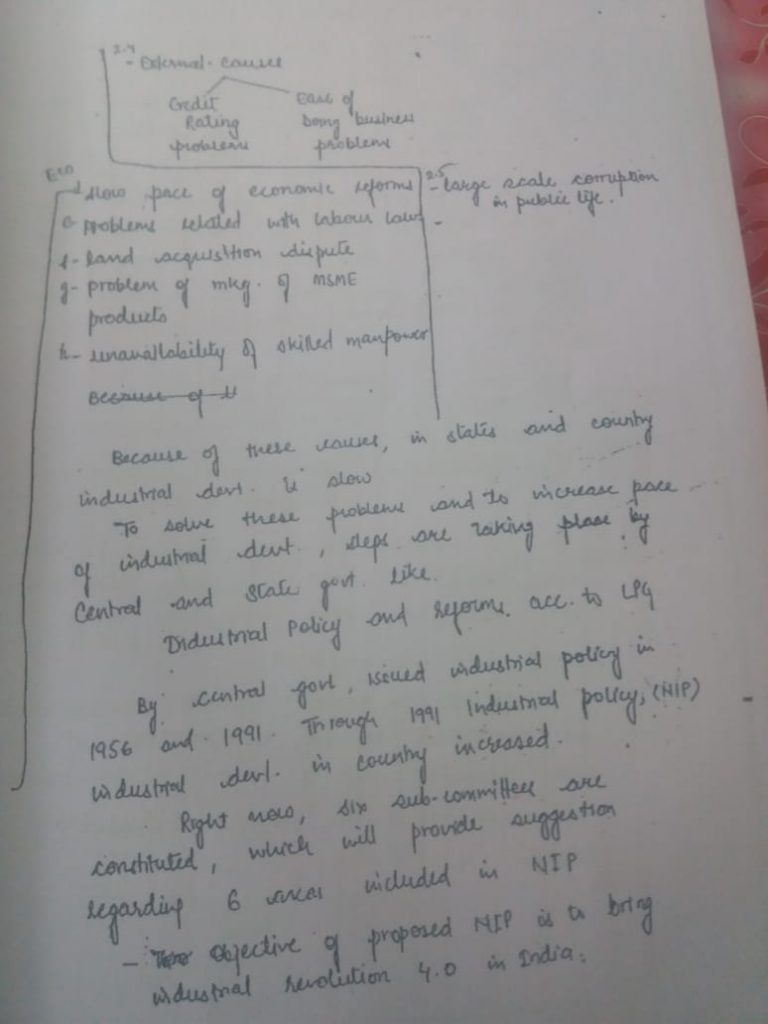 2.4
- External causes
Credit Rating problems
Ease of Doing business problems
Eco
d slow pace of economic reforms
e- problems related with labour law
f- land acquisition dispute
g- problem of mkg. of MSME
products
h- unavailability of skilled manpower
Because of
2.5
- large scale corruption
in public life.
-
Because of these causes, in states and country
industrial devt. is slow
To solve these problems and to increase pace
of industrial devt., steps are taking place by
Central and State govt. like.
Industrial Policy and reforms acc. to LPG
By central govt, issued industrial policy in
1956 and 1991. Through 1991 Industrial policy, (NIP)
industrial devt. in country increased.
Right now, six sub-committee are
constituted, which will provide suggestion
regarding 6 areas included in NIP
- Objective of proposed NIP is to bring
industrial revolution 4.0 in India.